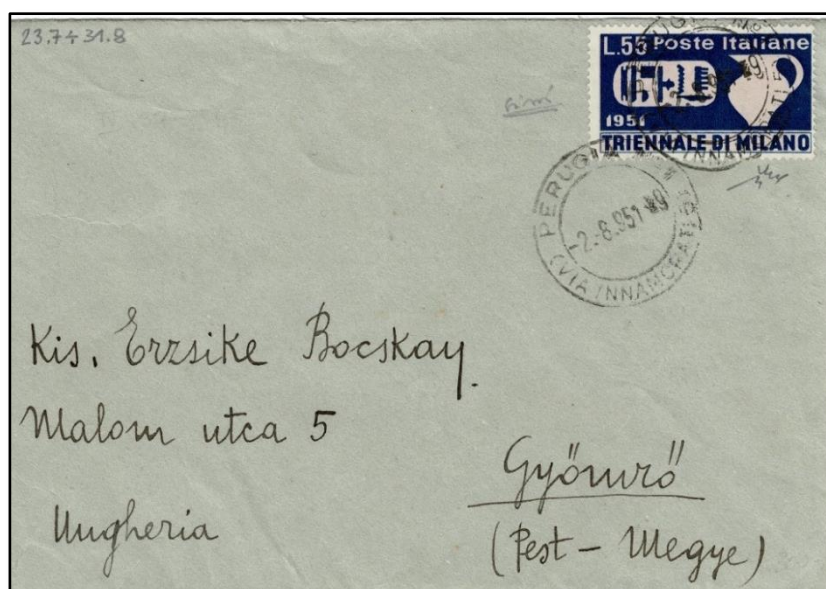 23.7÷31.8
L.55 Poste Italiane
1951
TRIENNALE DI MILANO
PERUGIA
-2.-8.951-19
(VIA INNAMORATI)
Kis. Erzsike Bocskay.
Malom utca 5
Győmrő
Ungheria
(Pest - Megye)